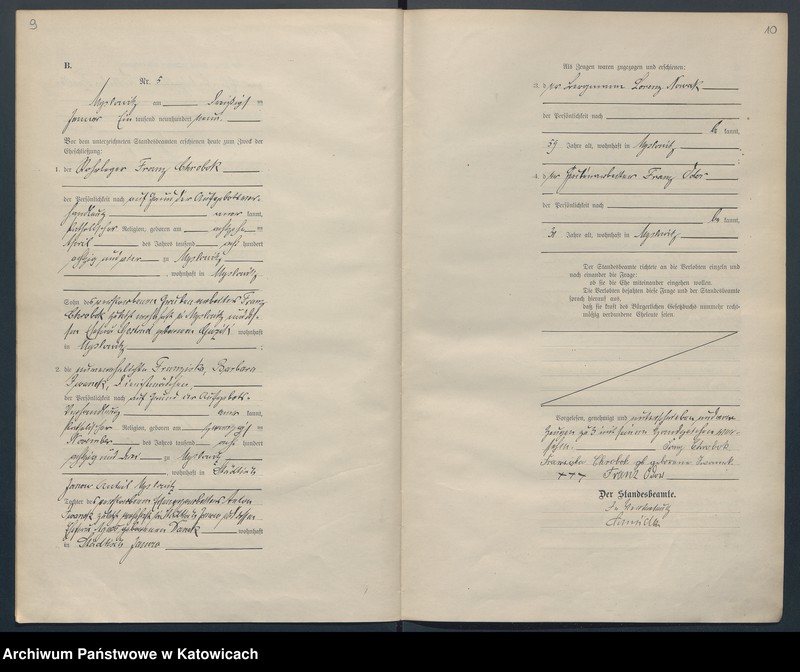 9
B.
Nr. 5
Myslowitz am dreißigsten
Januar Ein tausend neunhundert neun.
Vor dem unterzeichneten Standesbeamten erschienen heute zum Zweck der
Eheschließung:
1. der Franz Chrobok
der Persönlichkeit nach auf Grund der Aufgebotsver-
handlung kannt,
katholischer Religion, geboren am
April des Jahres tausend acht hundert
achtzig und vier zu Myslowitz
, wohnhaft in Myslowitz
Sohn des verstorbenen Grubenarbeiters Franz
Chrobok zuletzt wohnhaft in Myslowitz und des-
sen Ehefrau geborenen wohnhaft
in Myslowitz ;
2. die Franziska, Barbara
Iwanek, Dienstmädchen
der Persönlichkeit nach auf Grund der Aufgebots-
verhandlung kannt,
katholischer Religion, geboren am
November des Jahres tausend acht hundert
achtzig und drei zu Myslowitz
, wohnhaft in Städtisch
Janow Myslowitz
Tochter des verstorbenen
Iwanek zuletzt wohnhaft in Städtisch Janow und dessen
Ehefrau geborenen wohnhaft
in Städtisch Janow
10
Als Zeugen waren zugezogen und erschienen:
3. der Bergmann Lorenz Nowak
der Persönlichkeit nach
be kannt,
59 Jahre alt, wohnhaft in Myslowitz
;
4. der Franz Odor
der Persönlichkeit nach
be kannt,
Jahre alt, wohnhaft in Myslowitz
Der Standesbeamte richtete an die Verlobten einzeln und
nach einander die Frage:
ob sie die Ehe miteinander eingehen wollen.
Die Verlobten bejahten diese Frage und der Standesbeamte
sprach hierauf aus,
daß sie kraft des Bürgerlichen Gesetzbuchs nunmehr recht-
mäßig verbundene Eheleute seien.
Vorgelesen, genehmigt und unterschrieben und vom
Zeugen zu 3 mit seinem Handzeichen ver-
sehen. Franz Chrobok
Franziska Chrobok geborene Iwanek
+++ Franz Odor
Der Standesbeamte.
In Vertretung
Archiwum Państwowe w Katowicach